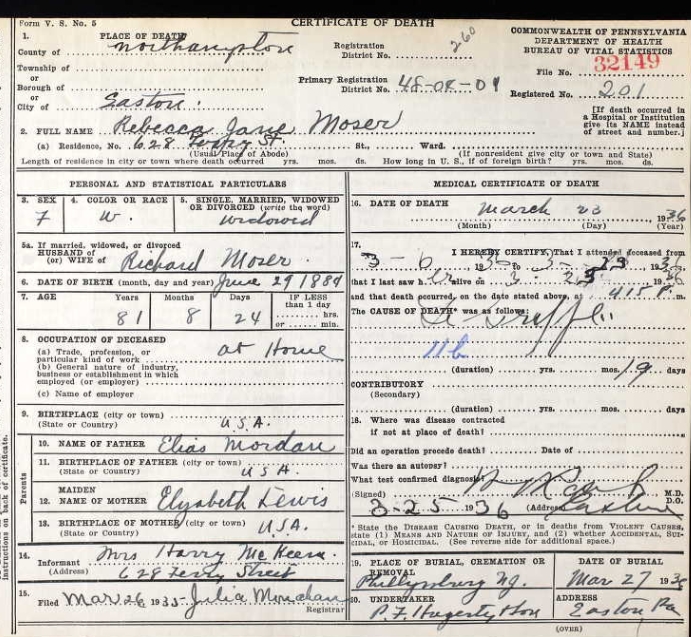 Form V. S. No. 5
CERTIFICATE OF DEATH
1. PLACE OF DEATH
County of Northampton
Township of
or
Borough of
or
City of Easton.
Registration District No. 260
Primary Registration District No. 48-04-09
COMMONWEALTH OF PENNSYLVANIA
DEPARTMENT OF HEALTH
BUREAU OF VITAL STATISTICS
File No. 32149
Registered No. 201
[If death occurred in a Hospital or Institution give its NAME instead of street and number.]
2. FULL NAME Rebecca Jane Moser
(a) Residence, No. 628 Ferry St. St., Ward.
(Usual Place of Abode) (If nonresident give city or town and State)
Length of residence in city or town where death occurred yrs. mos. ds. How long in U. S., if of foreign birth? yrs. mos. ds.
PERSONAL AND STATISTICAL PARTICULARS
3. SEX F
4. COLOR OR RACE W.
5. SINGLE, MARRIED, WIDOWED OR DIVORCED (write the word) widowed
5a. If married, widowed, or divorced
HUSBAND of
(or) WIFE of Richard Moser
6. DATE OF BIRTH (month, day and year) June 29 1884
7. AGE Years Months Days IF LESS than 1 day
81 8 24 hrs. or min.
8. OCCUPATION OF DECEASED
(a) Trade, profession, or particular kind of work at Home
(b) General nature of industry, business or establishment in which employed (or employer)
(c) Name of employer
9. BIRTHPLACE (city or town)
(State or Country) U.S.A.
Parents
10. NAME OF FATHER Elias Mordan
11. BIRTHPLACE OF FATHER (city or town)
(State or Country) U.S.A.
12. MAIDEN NAME OF MOTHER Elyabeth Lewis
13. BIRTHPLACE OF MOTHER (city or town)
(State or Country) U.S.A.
14. Informant Mrs Harry McKeen
(Address) 628 Ferry Street
15. Filed Mar 26 1935 Julia Monahan Registrar
MEDICAL CERTIFICATE OF DEATH
16. DATE OF DEATH March 23 1936
(Month) (Day) (Year)
17. I HEREBY CERTIFY, That I attended deceased from
3-6 1936 to 3-23 1936
that I last saw her alive on 3-23 1936
and that death occurred, on the date stated above, at 415 P. m.
The CAUSE OF DEATH* was as follows:
11b
(duration) yrs. mos. 19 days
CONTRIBUTORY
(Secondary)
(duration) yrs. mos. days
18. Where was disease contracted
if not at place of death?
Did an operation precede death? Date of
Was there an autopsy?
What test confirmed diagnosis?
(Signed) M.D. D.O.
3-25 1936 (Address) Easton
* State the DISEASE CAUSING DEATH, or in deaths from VIOLENT CAUSES, state (1) MEANS AND NATURE OF INJURY, and (2) whether ACCIDENTAL, SUICIDAL, or HOMICIDAL. (See reverse side for additional space.)
19. PLACE OF BURIAL, CREMATION OR REMOVAL Phillipsburg NJ.
DATE OF BURIAL Mar 27 1936
20. UNDERTAKER P. F. Hagerty & Son
ADDRESS Easton Pa
(OVER)
instructions on back of certificate.